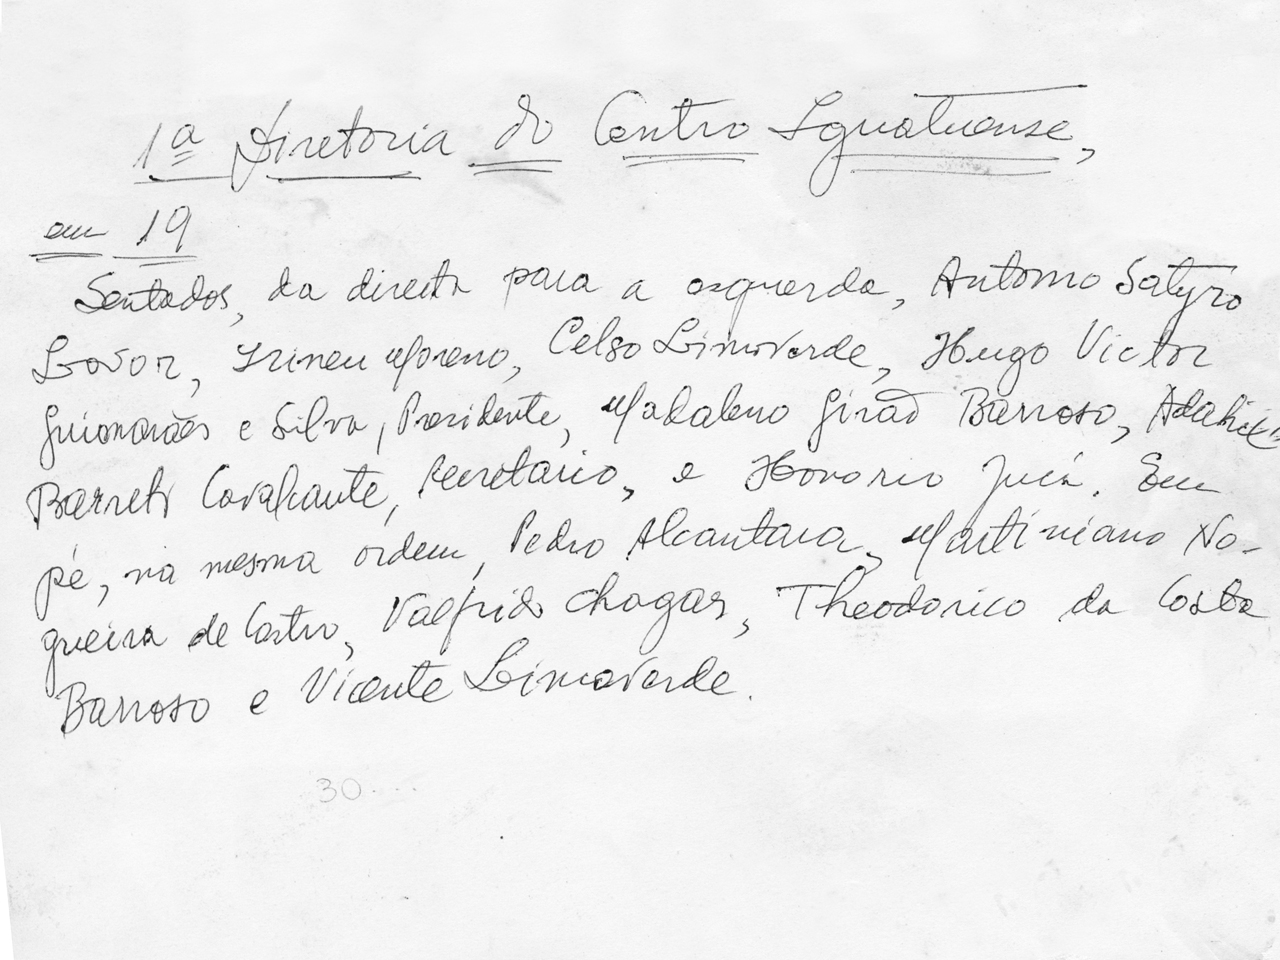 1ª Diretoria do Centro Iguatuense,
em 19
Sentados, da direita para a esquerda, Antonio Satyro
Lavor, Irineu Moreno, Celso Limaverde, Hugo Victor
Guimarães e Silva, Presidente, Madaleno Girão Barroso,
Barreto Cavalcante, secretário, e Honorio Jucá. Em
pé, na mesma ordem, Pedro Alcantara, Martiniano No-
gueira de Castro, Valfrido Chagas, Theodorico da Costa
Barroso e Vicente Limaverde.
30